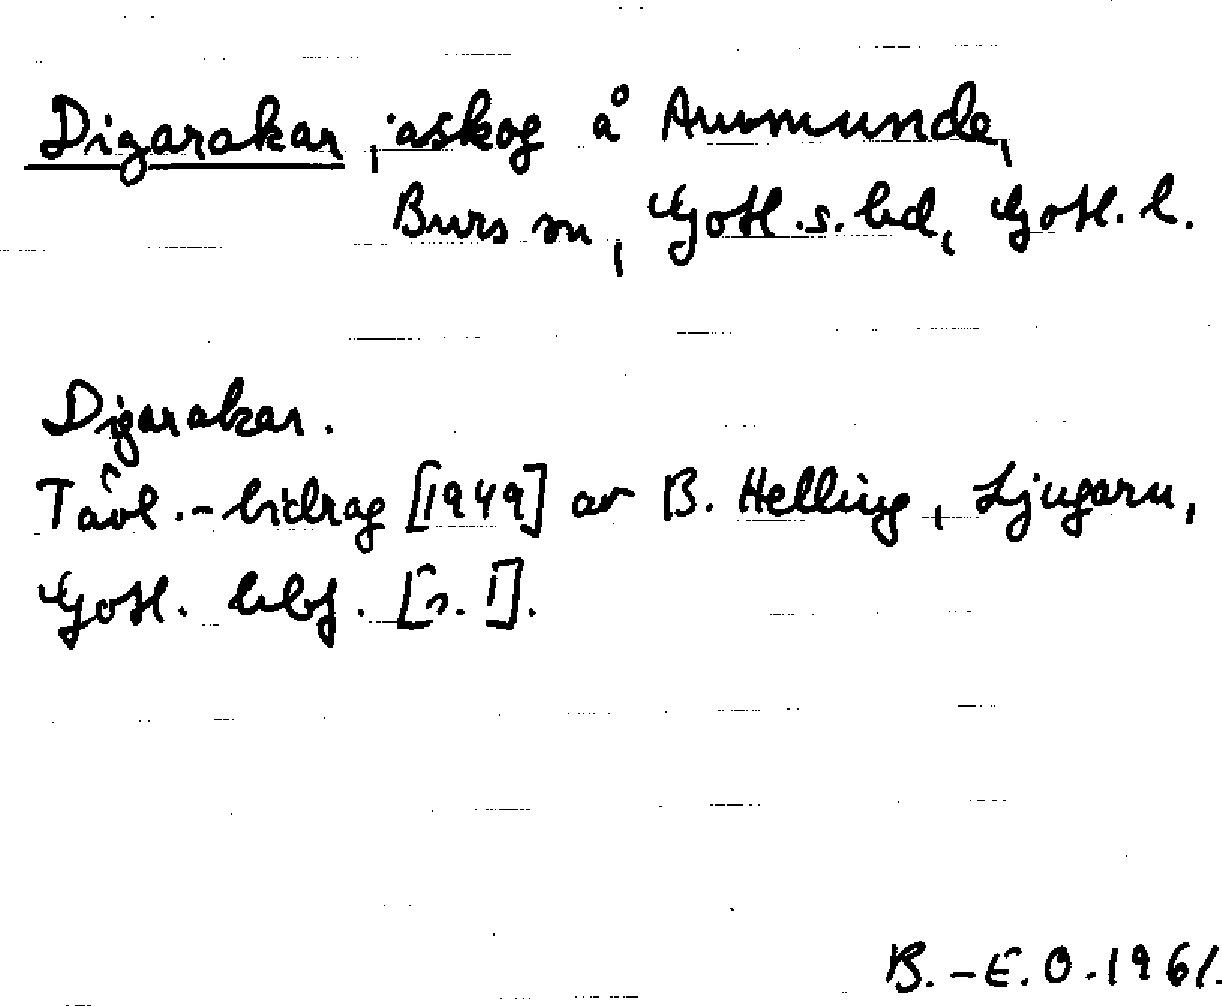 Digarakar, åskog å Ammunde,
Burs sn, Gotl. s. hd, Gotl. l.
Digarakar.
Tävl.-bidrag [1949] av B. Helling, Ljugarn,
Gotl. hbf. [s. 1].
B.-E. O. 1961.